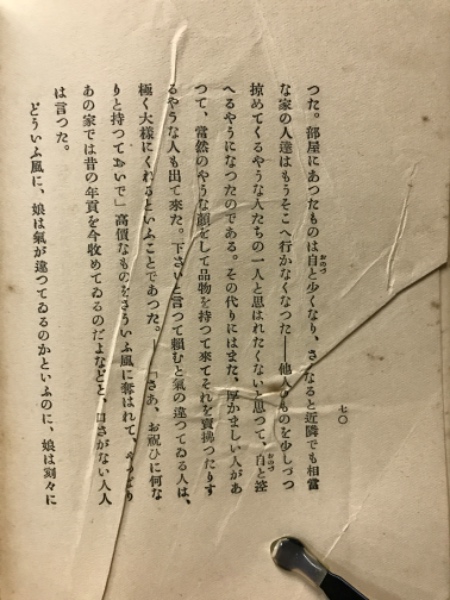 つた。部屋にあつたものは自と少くなり、さうなると近隣でも相當
な家の人達はもうそこへ行かなくなつた――他人のものを少しづつ
掠めてくるやうな人たちの一人と思はれたくないと思つて、自と控
へるやうになつたのである。その代りにはまた、厚かましい人があ
つて、當然のやうな顔をして品物を持つて來てそれを賣拂つたりす
るやうな人も出て來た。下さいと言つて頼むと氣の違つてゐる人は、
極く大樣にくれるといふことであつた。――「さあ、お祝ひに何な
りと持つておいで」高價なものをさういふ風に奪はれて、やつぱり
あの家では昔の年貢を今收めてゐるのだよなどと、口さがない人人
は言つた。
どういふ風に、娘は氣が違つてゐるのかといふのに、娘は刻々に
おのづ
おのづ
七〇